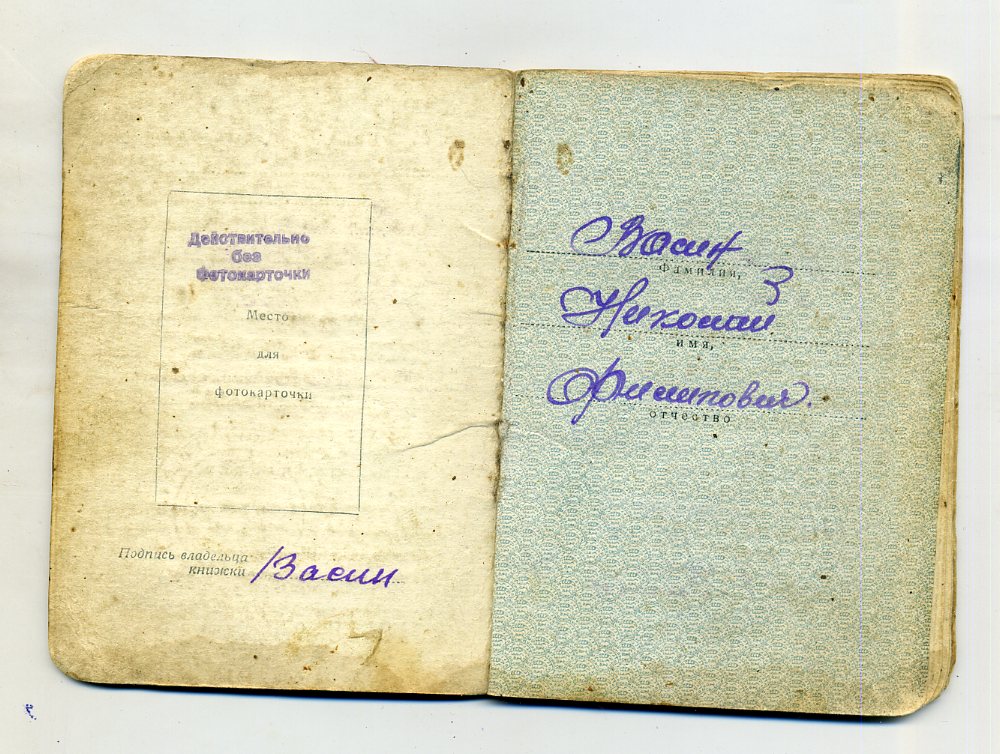 Действительно
без
Фотокарточки
Место
для
фотокарточки
Подпись владельца
книжки Васин
Васин
фамилия,
Николай
имя,
Филиппович.
отчество